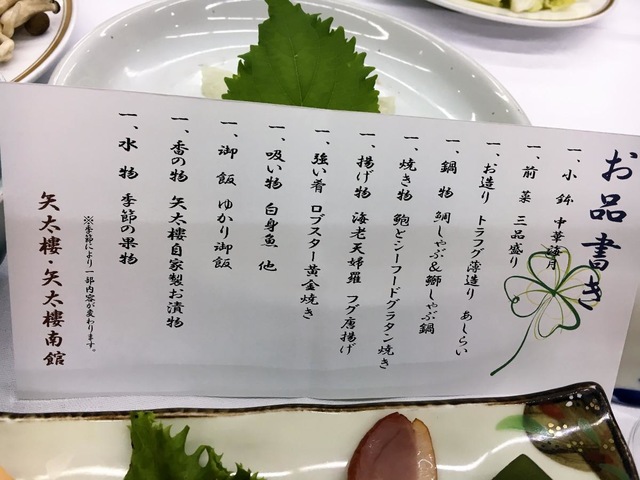 お品書き
一、小鉢 中華海月
一、前菜 三品盛り
一、お造り トラフグ薄造り あしらい
一、鍋物 鯛しゃぶ&鰤しゃぶ鍋
一、焼き物 鮑とシーフードグラタン焼き
一、揚げ物 海老天婦羅 フグ唐揚げ
一、強い肴 ロブスター黄金焼き
一、吸い物 白身魚 他
一、御飯 ゆかり御飯
一、香の物 矢太樓自家製お漬物
一、水物 季節の果物
※季節により一部内容が変わります。
矢太樓・矢太樓南館